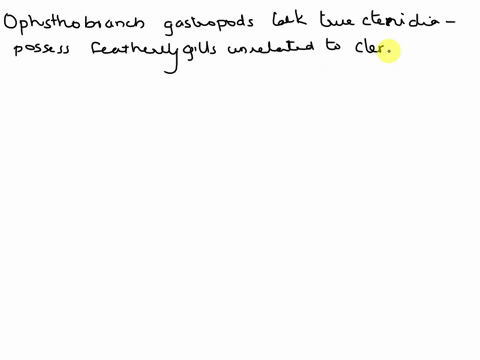 Ophisthobranch gastropods lack true ctenidia -
possess featherly gills unrelated to cter